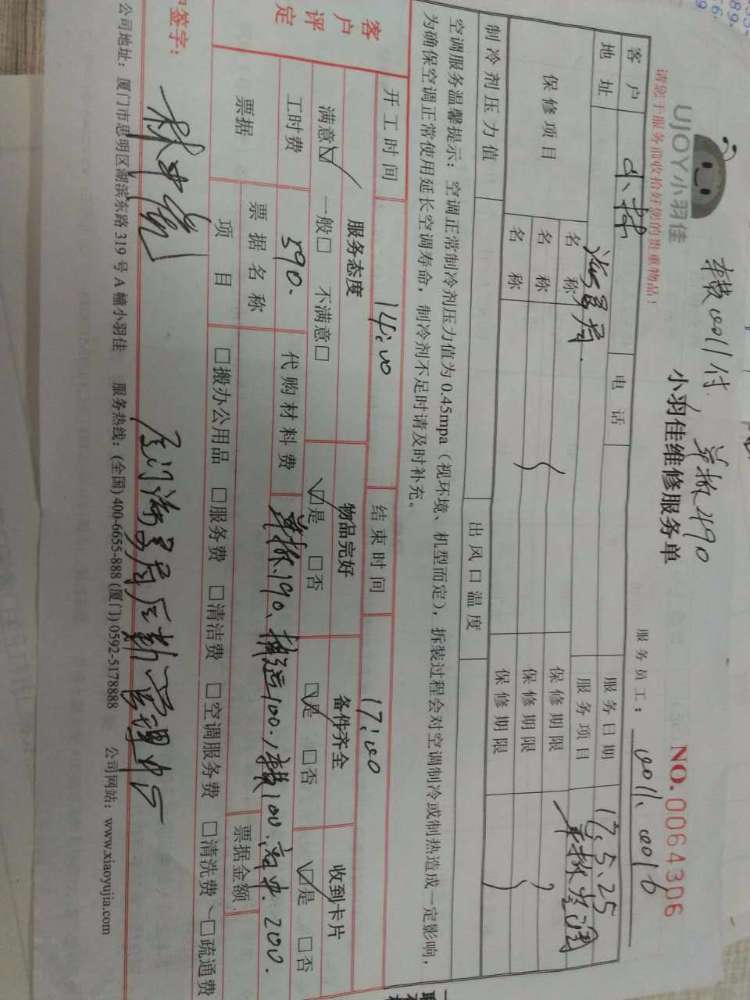 UJOY小羽佳
请您于服务前收拾好您的贵重物品！
载0011付
单拆490
小羽佳维修服务单
NO.0064306
服务员工：0011.0016
客户 小林 电话 服务日期 17.5.25
地址 海易居. 服务项目 单拆空调
保修项目 名称 保修期限
名称 保修期限
名称 保修期限
制冷剂压力值 出风口温度
空调服务温馨提示：空调正常制冷剂压力值为0.45mpa（视环境、机型而定），拆装过程会对空调制冷或制热造成一定影响，
为确保空调正常使用延长空调寿命，制冷剂不足时请及时补充。
开工时间 14:00 结束时间 17:00
客户评定
服务态度 物品完好 备件齐全 收到卡片
满意☑ 一般□ 不满意□ ☑是 □否 ☑是 □否 ☑是 □否
工时费 590. 代购材料费 单拆.190、搬运100.、载100. 200.
票据 票据名称 票据金额
项目 □搬办公用品 □服务费 □清洁费 □空调服务费 □清洗费、□疏通费
户签字：
厦门海易居后勤管理中心
公司地址：厦门市思明区湖滨东路319号A幢小羽佳 服务热线：(全国)400-6655-888 (厦门)0592-5178888 公司网站：www.xiaoyujia.com